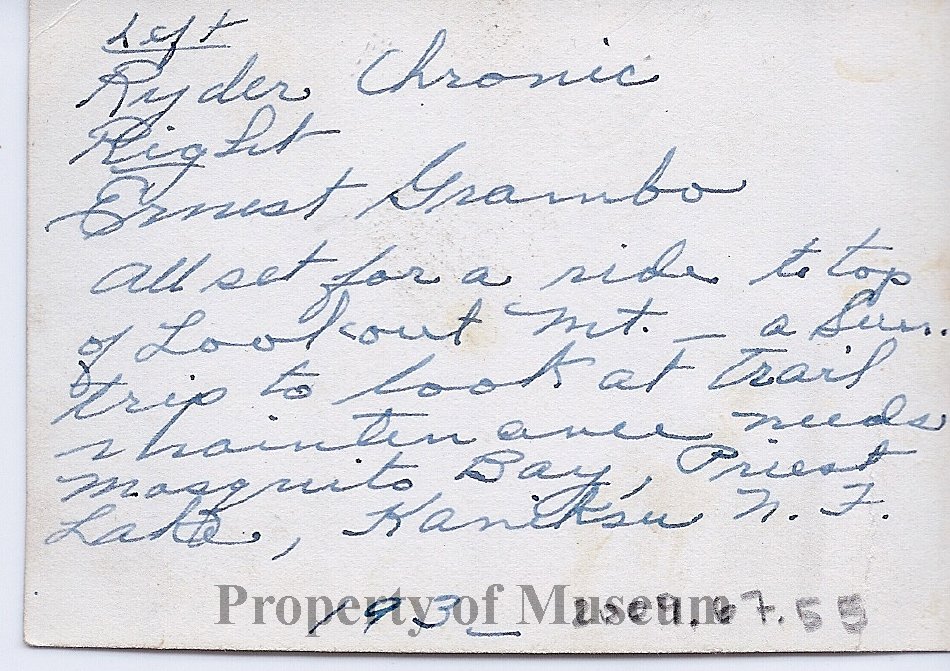 Left
Ryder Chronic
Right
Ernest Grambo
All set for a ride to top
of Lookout Mt. – a Sun.
trip to look at Trail
maintenance needs
Mosquito Bay, Priest
Lake, Kaniksu N. F.
193_
Property of Museum
2009.07.55